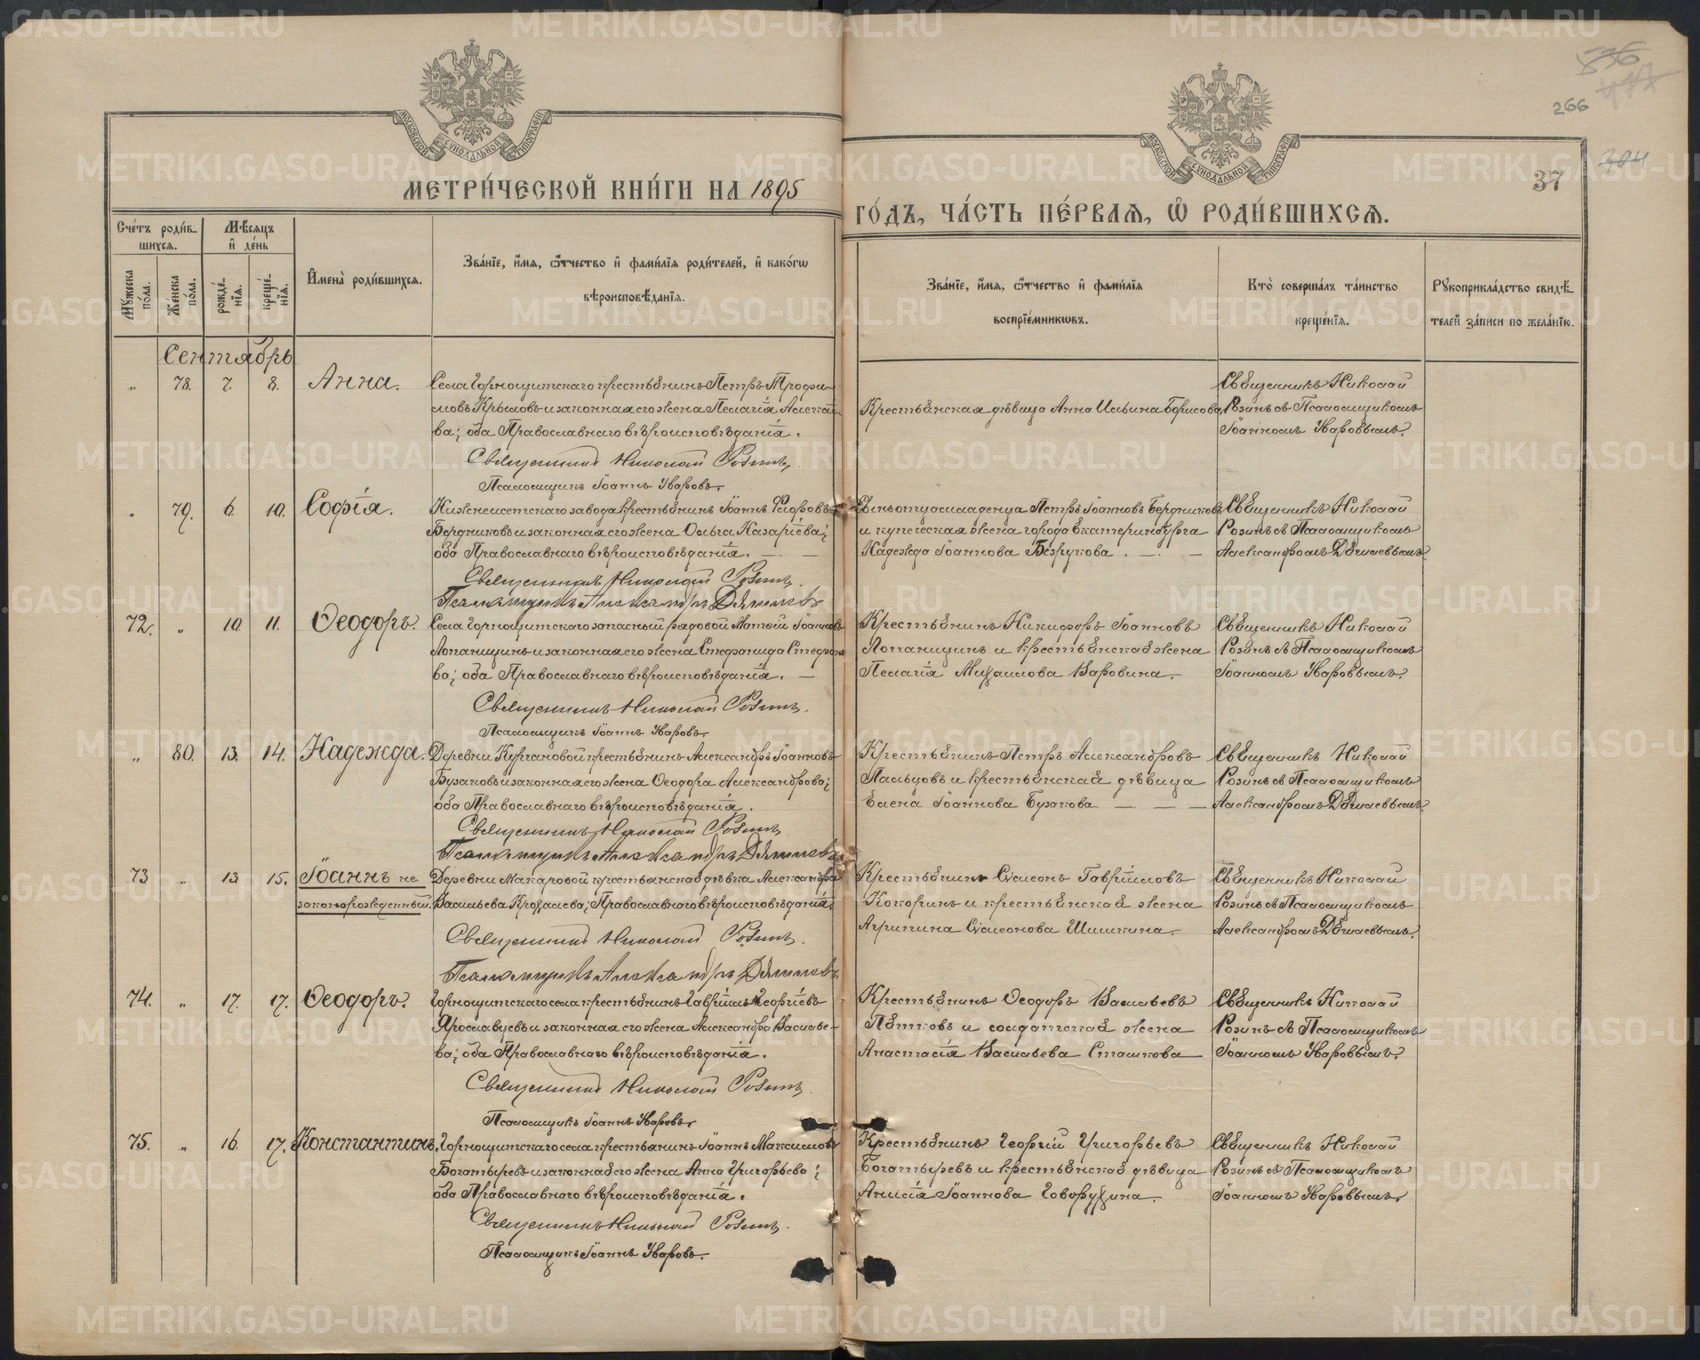 МЕТРИ́ЧЕСКОЙ КНИ́ГИ НА 1895
ГО́ДЪ, ЧА́СТЬ ПЕ́РВАѦ, Ѡ҆ РОДИ́ВШИХСѦ.
266
37
Сче́тъ роди́в-
шихсѧ.
Мꙋ́жеска по́ла.
Же́нска по́ла.
Мѣ́сѧцъ
и҆ де́нь
рожде́-
нїѧ.
креще́-
нїѧ.
И҆мена̀ роди́вшихсѧ.
Зва́нїе, и҆́мѧ, ѻ҆́тчество и҆ фами́лїѧ роди́телей, и҆ како́гѡ
вѣроисповѣ́данїѧ.
Зва́нїе, и҆́мѧ, ѻ҆́тчество и҆ фами́лїѧ
воспрїе́мникѡвъ.
Кто̀ соверша́лъ та́инство
креще́нїѧ.
Рꙋкоприкла́дство свидѣ́-
телей за́писи по жела́нїю.
Сентябрь
„ 78. 7. 8. Анна.
Села Горнощитскаго крестьянинъ Петръ Трофи-
мовъ Крыловъ и законная его жена Пелагія
ва; оба Православнаго вѣроисповѣданія.
Священникъ Николай Розинъ.
Псаломщикъ Іоаннъ Уваровъ.
Крестьянская дѣвица Анна Ильина Борисова.
Священникъ Николай
Розинъ съ Псаломщикомъ
Іоанномъ Уваровымъ.
„ 79. 6. 10. Софія.
Нижнеисетскаго завода крестьянинъ Іоаннъ Ѳеодоровъ
Бердниковъ и законная его жена Ольга Назаріева;
оба Православнаго вѣроисповѣданія.
Священникъ Николай Розинъ.
Псаломщикъ Александръ
Петръ Іоанновъ Бердниковъ
и купеческая жена города Екатеринбурга
Надежда Іоаннова Безрукова.
Священникъ Николай
Розинъ съ Псаломщикомъ
Александромъ
72. „ 10. 11. Ѳеодоръ.
Села Горнощитскаго запасный рядовой Іоанновъ
Лопатицинъ и законная его жена Стефанида Стефано-
ва; оба Православнаго вѣроисповѣданія.
Священникъ Николай Розинъ.
Псаломщикъ Іоаннъ Уваровъ.
Крестьянинъ Никифоръ Іоанновъ
и крестьянская жена
Пелагія Михаилова
Священникъ Николай
Розинъ съ Псаломщикомъ
Іоанномъ Уваровымъ.
„ 80. 13. 14. Надежда.
Деревни Кургановой крестьянинъ Александръ Іоанновъ
Бузаковъ и законная его жена Ѳеодора Александрова;
оба Православнаго вѣроисповѣданія.
Священникъ Николай Розинъ.
Псаломщикъ Александръ
Крестьянинъ Петръ Александровъ
Пальцовъ и крестьянская дѣвица
Елена Іоаннова Бузакова
Священникъ Николай
Розинъ съ Псаломщикомъ
Александромъ
73 „ 13 15. Іоаннъ не
законорожденный.
Деревни Макаровой крестьянская дѣвка Александра
Васильева Крохалева; Православнаго вѣроисповѣданія.
Священникъ Николай Розинъ.
Псаломщикъ Александръ
Крестьянинъ Симеонъ Гавріиловъ
Кокоринъ и крестьянская жена
Агрипина Симеонова Шишкина.
Священникъ Николай
Розинъ съ Псаломщикомъ
Александромъ
74. „ 17. 17. Ѳеодоръ.
Горнощитскаго села крестьянинъ Гавріилъ Георгіевъ
Ярославцевъ и законная его жена Александра Василье-
ва; оба Православнаго вѣроисповѣданія.
Священникъ Николай Розинъ.
Псаломщикъ Іоаннъ Уваровъ.
Крестьянинъ Ѳеодоръ Васильевъ
Пятковъ и солдатская жена
Анастасія Васильева Сташкова
Священникъ Николай
Розинъ съ Псаломщикомъ
Іоанномъ Уваровымъ.
75. „ 16 17. Константинъ.
Горнощитскаго села крестьянинъ Іоаннъ Максимовъ
Богатыревъ и законная его жена Анна Григорьева;
оба Православнаго вѣроисповѣданія.
Священникъ Николай Розинъ.
Псаломщикъ Іоаннъ Уваровъ.
Крестьянинъ Георгій Григорьевъ
Богатыревъ и крестьянская дѣвица
Анисія Іоаннова Говорухина.
Священникъ Николай
Розинъ съ Псаломщикомъ
Іоанномъ Уваровымъ.
METRIKI.GASO-URAL.RU